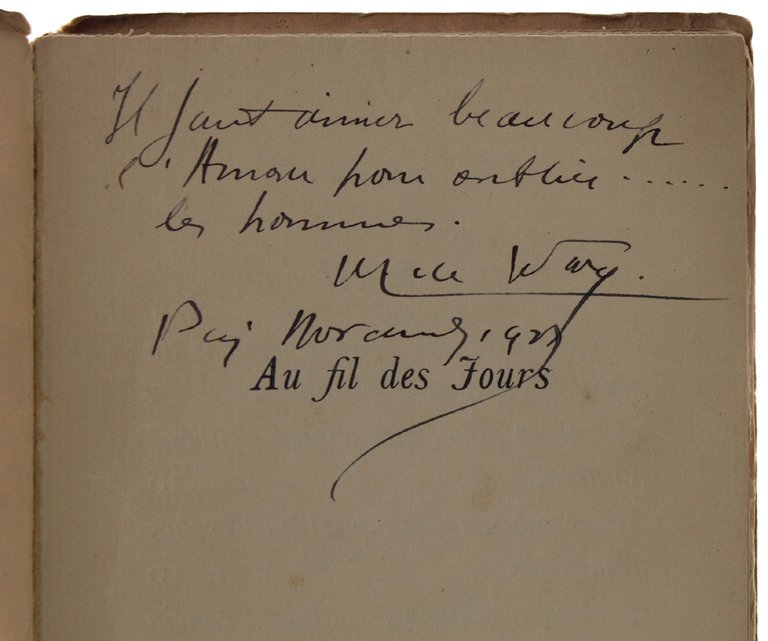 Il faut aimer beaucoup
l'Amour pour oublier ......
les hommes.
Paris Novembre 192
Au fil des Jours